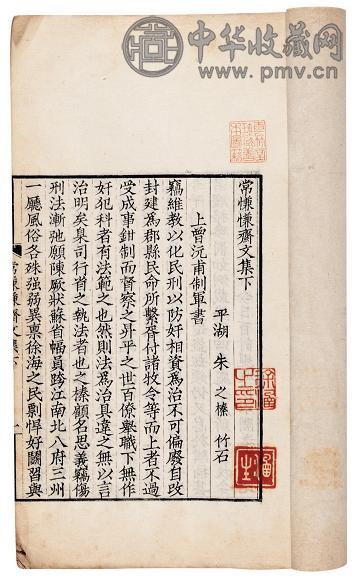 中华收藏网
www.pmv.cn
常慊慊齋文集下
平湖 朱 之榛 竹石
上曾沅甫制軍書
竊維教以化民刑以防奸相資為治不可偏廢自改
封建為郡縣民命所繫胥付諸牧令等而上者不過
受成事鉗制而督察之昇平之世百僚舉職下無作
奸犯科者有法範之也然則法為治具違之無以言
治明矣臬司行首之執法者也之榛顧名思義竊傷
刑法漸弛願陳厥狀蘇省幅員跨江南北八府三州
一廳風俗各殊強弱異稟徐海之民剽悍好鬭習與
常慊慊齋文集下
一